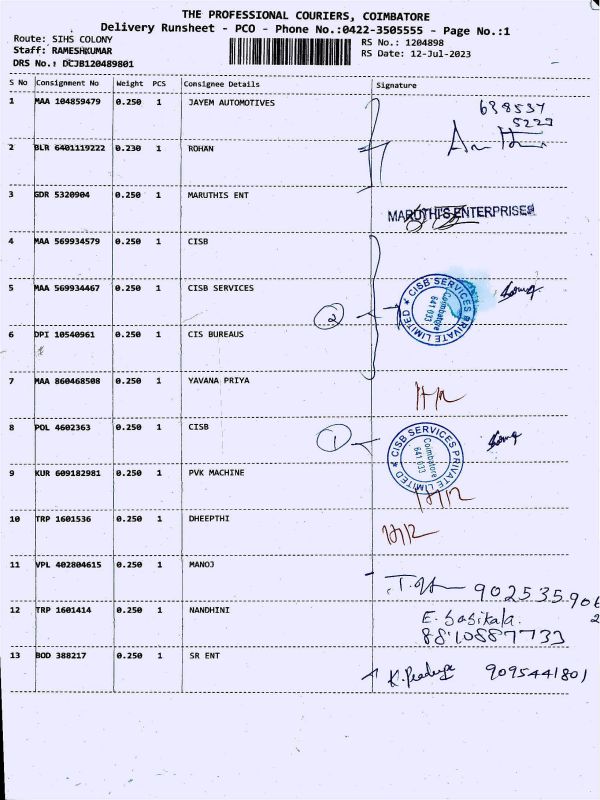 THE PROFESSIONAL COURIERS, COIMBATORE
Delivery Runsheet - PCO - Phone No.:0422-3505555 - Page No.:1
Route: SIHS COLONY
RS No.: 1204898
Staff: RAMESHKUMAR
RS Date: 12-Jul-2023
DRS No.: DCJB120489801
S No Consignment No Weight PCS Consignee Details Signature
1 MAA 104859479 0.250 1 JAYEM AUTOMOTIVES
638537
5223
2 BLR 6401119222 0.230 1 ROHAN
3 GDR 5320904 0.250 1 MARUTHIS ENT
MARUTHI'S ENTERPRISES
4 MAA 569934579 0.250 1 CISB
5 MAA 569934467 0.250 1 CISB SERVICES
2
CISB SERVICES PRIVATE LIMITED
Coimbatore
641 033
6 DPI 10540961 0.250 1 CIS BUREAUS
7 MAA 860468508 0.250 1 YAVANA PRIYA
8 POL 4602363 0.250 1 CISB
1
CISB SERVICES PRIVATE LIMITED
Coimbatore
641 033
9 KUR 609182981 0.250 1 PVK MACHINE
10 TRP 1601536 0.250 1 DHEEPTHI
11 VPL 402804615 0.250 1 MANOJ
902535906
2
12 TRP 1601414 0.250 1 NANDHINI
E. Sasikala.
8810887733
13 BOD 388217 0.250 1 SR ENT
9095441801